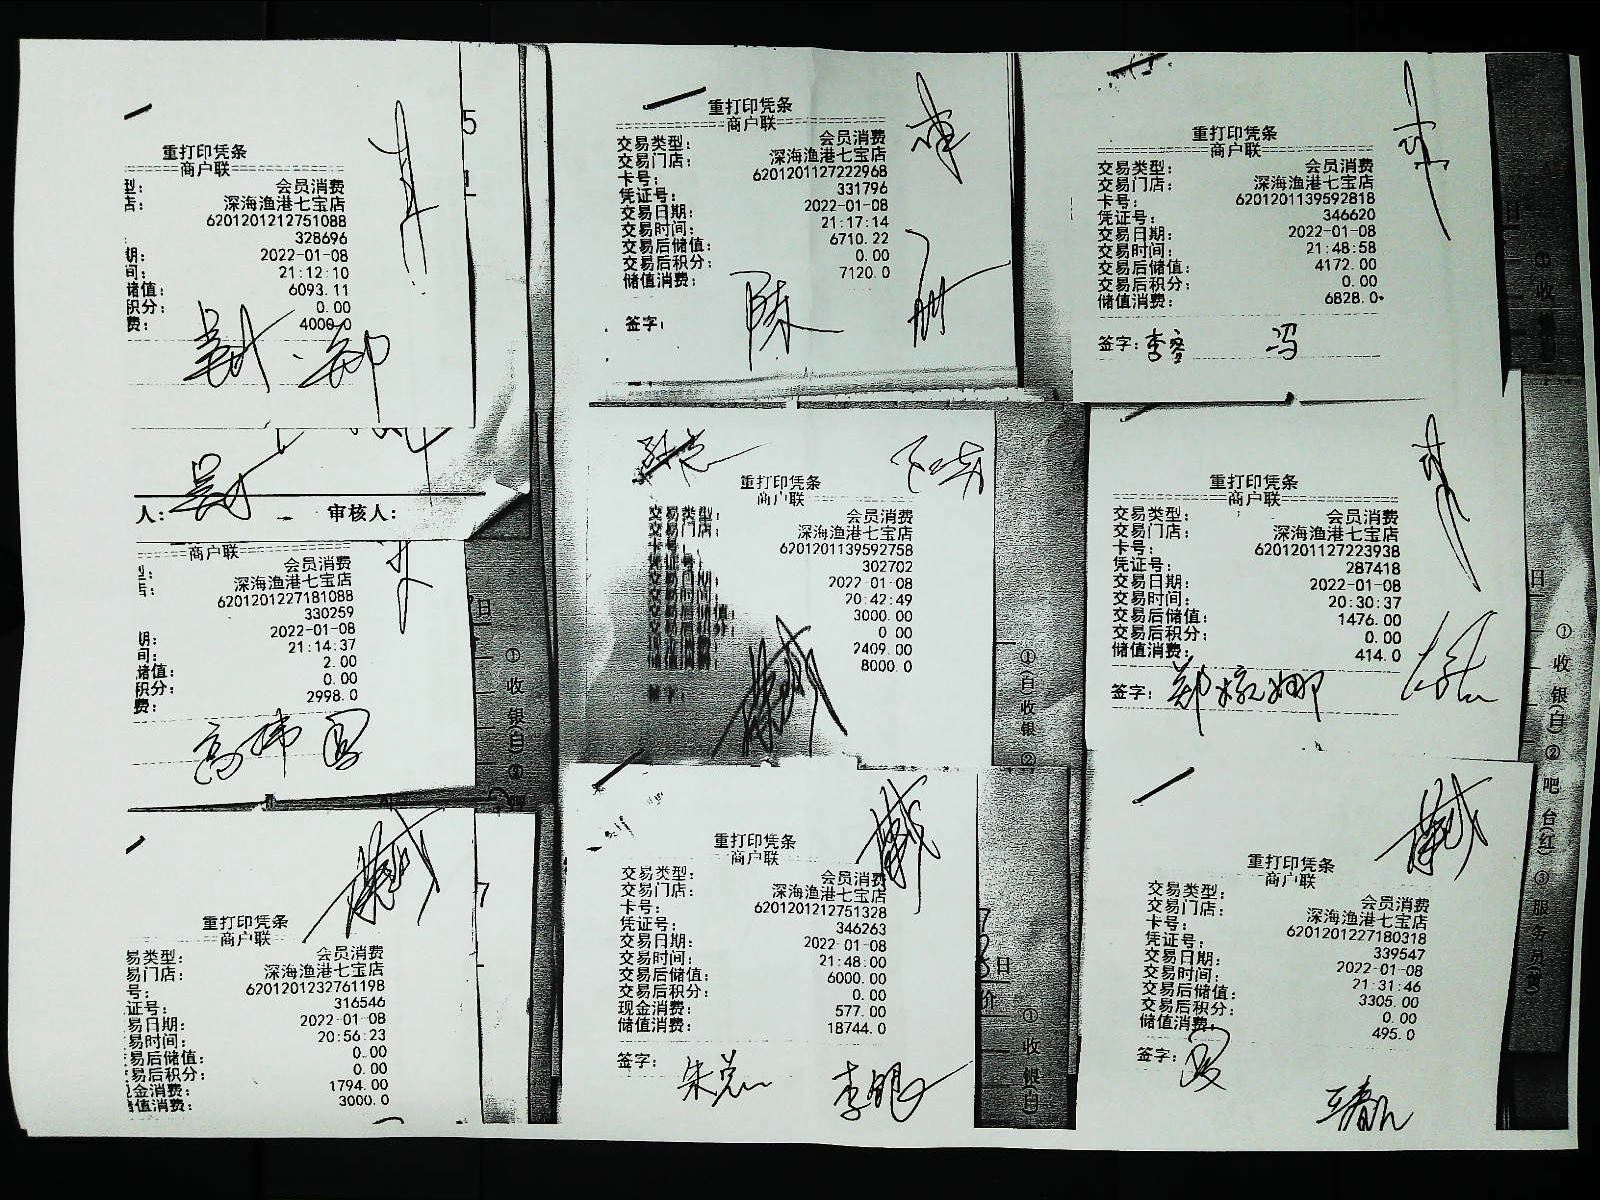 重打印凭条
商户联
型：　会员消费
店：　深海渔港七宝店
6201201212751088
328696
期：　2022-01-08
间：　21:12:10
储值：　6093.11
积分：　0.00
费：　4000.0
5
重打印凭条
商户联
交易类型：　会员消费
交易门店：　深海渔港七宝店
卡号：　6201201127222968
凭证号：　331796
交易日期：　2022-01-08
交易时间：　21:17:14
交易后储值：　6710.22
交易后积分：　0.00
储值消费：　7120.0
签字：　陈
重打印凭条
商户联
交易类型：　会员消费
交易门店：　深海渔港七宝店
卡号：　6201201139592818
凭证号：　346620
交易日期：　2022-01-08
交易时间：　21:48:58
交易后储值：　4172.00
交易后积分：　0.00
储值消费：　6828.0
签字：李　冯
人：　审核人：
商户联
型：　会员消费
店：　深海渔港七宝店
6201201227181088
330259
期：　2022-01-08
间：　21:14:37
储值：　2.00
积分：　0.00
费：　2998.0
高
日
① 收 银(白) ②
重打印凭条
商户联
交易类型：　会员消费
交易门店：　深海渔港七宝店
卡号：　6201201139592758
302702
2022-01-08
20:42:49
3000.00
0.00
2409.00
8000.0
① 白 收 银 ②
重打印凭条
商户联
交易类型：　会员消费
交易门店：　深海渔港七宝店
卡号：　6201201127223938
凭证号：　287418
交易日期：　2022-01-08
交易时间：　20:30:37
交易后储值：　1476.00
交易后积分：　0.00
储值消费：　414.0
签字：
日
① 收 银(白) ② 吧 台(红) ③ 服 务
重打印凭条
商户联
易类型：　会员消费
易门店：　深海渔港七宝店
号：　6201201232761198
证号：　316546
易日期：　2022-01-08
易时间：　20:56:23
易后储值：　0.00
易后积分：　0.00
金消费：　1794.00
值消费：　3000.0
7
重打印凭条
商户联
交易类型：　会员消费
交易门店：　深海渔港七宝店
卡号：　6201201212751328
凭证号：　346263
交易日期：　2022-01-08
交易时间：　21:48:00
交易后储值：　6000.00
交易后积分：　0.00
现金消费：　577.00
储值消费：　18744.0
签字：　朱　李
日
价
① 收 银(白)
重打印凭条
商户联
交易类型：　会员消费
交易门店：　深海渔港七宝店
卡号：　6201201227180318
凭证号：　339547
交易日期：　2022-01-08
交易时间：　21:31:46
交易后储值：　3305.00
交易后积分：　0.00
储值消费：　495.0
签字：